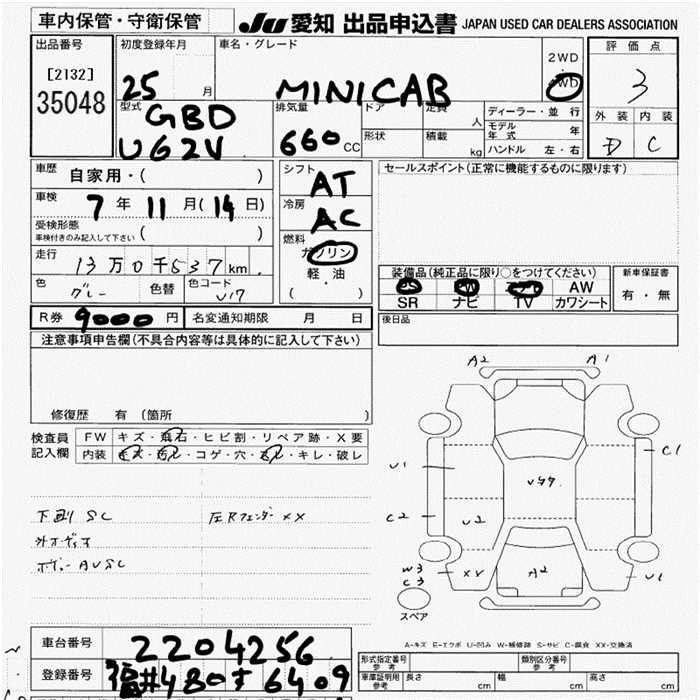 車内保管・守衛保管
JU 愛知 出品申込書 JAPAN USED CAR DEALERS ASSOCIATION
出品番号
[2132]
35048
初度登録年月
25 月
車名・グレード
MINICAB
2WD
4WD
評価点
3
外装 内装
D C
型式
GBD
U62V
排気量
660 CC
ドア
定員
人
形状
積載
kg
ディーラー・並行
モデル年式 年
ハンドル 左・右
車歴
自家用・( )
車検
7年11月(14日)
受検形態
車検付きのみ記入して下さい ( )
走行
13万0千537km
色
グレー
色替
色コード
U17
シフト
AT
冷房
AC
燃料
ガソリン
軽・油
( )
セールスポイント(正常に機能するものに限ります)
装備品(純正品に限り○をつけてください)
PS PW AW
SR ナビ TV カワシート
新車保証書
有・無
R券 9000円
名変通知期限 月 日
後日品
注意事項申告欄(不具合内容等は具体的に記入して下さい)
修復歴 有 (箇所 )
検査員記入欄
FW キズ・飛石・ヒビ割・リペア跡・X要
内装 キズ・汚レ・コゲ・穴・スレ・キレ・破レ
下廻りSC
左Rフェンダー XX
外オーディオ
ボデーAUSC
A2 A1
U1
C1
C2
U2
A2
W3
C3
XX
U1
スペア
A-キズ E-エクボ U-凹み W-補修跡 S-サビ C-腐食 XX-交換済
車台番号
2204256
登録番号
福井480す6409
形式指定番号
参考
類別区分番号
参考
車庫証明用
参考
長さ cm 幅 cm 高さ cm